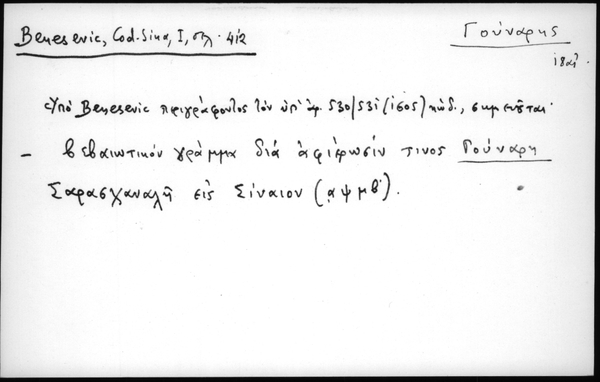 Benesevic, Cod. Sina, I, σελ. 412
Γούναρης
18ος αἰ.
Ὑπό Benesevic περιγράφοντος τόν ὑπ' ἀρ. 530/531 (1505) κώδ., σημειοῦται·
– βεβαιωτικόν γράμμα διά ἀφιέρωσίν τινος Γούναρη
Σαρασχαναλῆ εἰς Σίναιον (͵αψμβ').